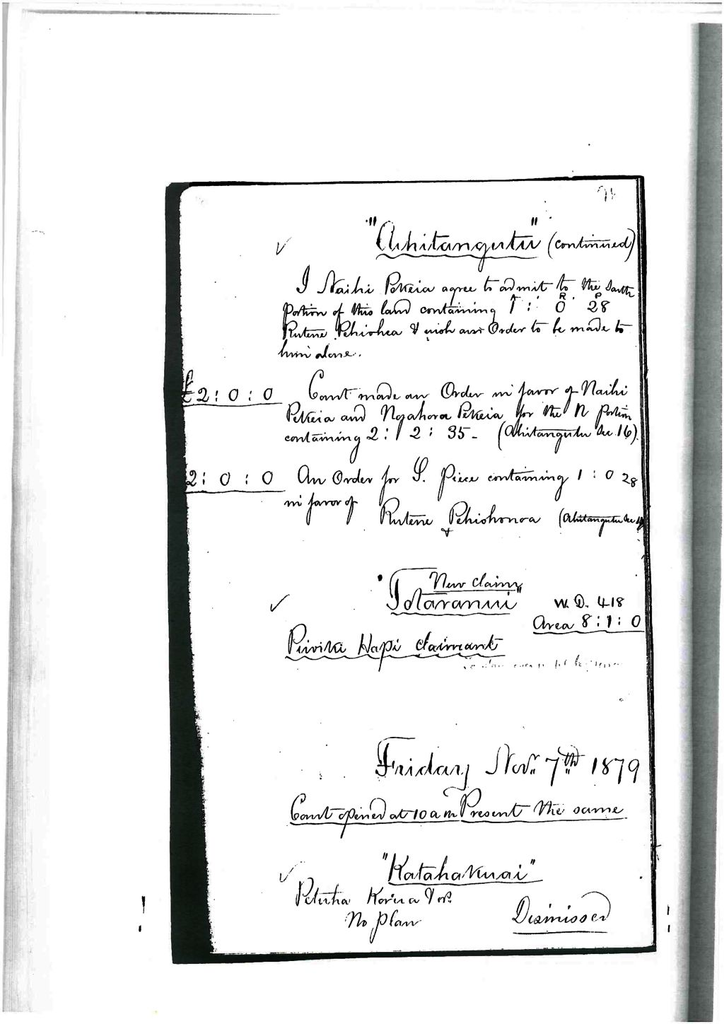 "Ahitangutu" (continued)
I Naihi Pekeia agree to admit to the South
A R P
portion of this land containing 1 : 0 28
Rutene Pehiohea & wish an Order to be made to
him alone.
£2 : 0 : 0 Court made an Order in favor of Naihi
Pekeia and Ngahora Pekeia for the N portion
containing 2 : 2 : 35 - (Ahitangutu Sec. 16).
2 : 0 : 0 An Order for S. Piece containing 1 : 0 28
in favor of Rutene Pehiohonoa (Ahitangutu
New Claim
"Totaranui" W.D. 418
Area 8 : 1 : 0
Piwika Hapi claimant
Friday Novr. 7th 1879
Court opened at 10 a m Present the same
"Katahakuai"
Petutha Korua & ors.
No plan Dismissed